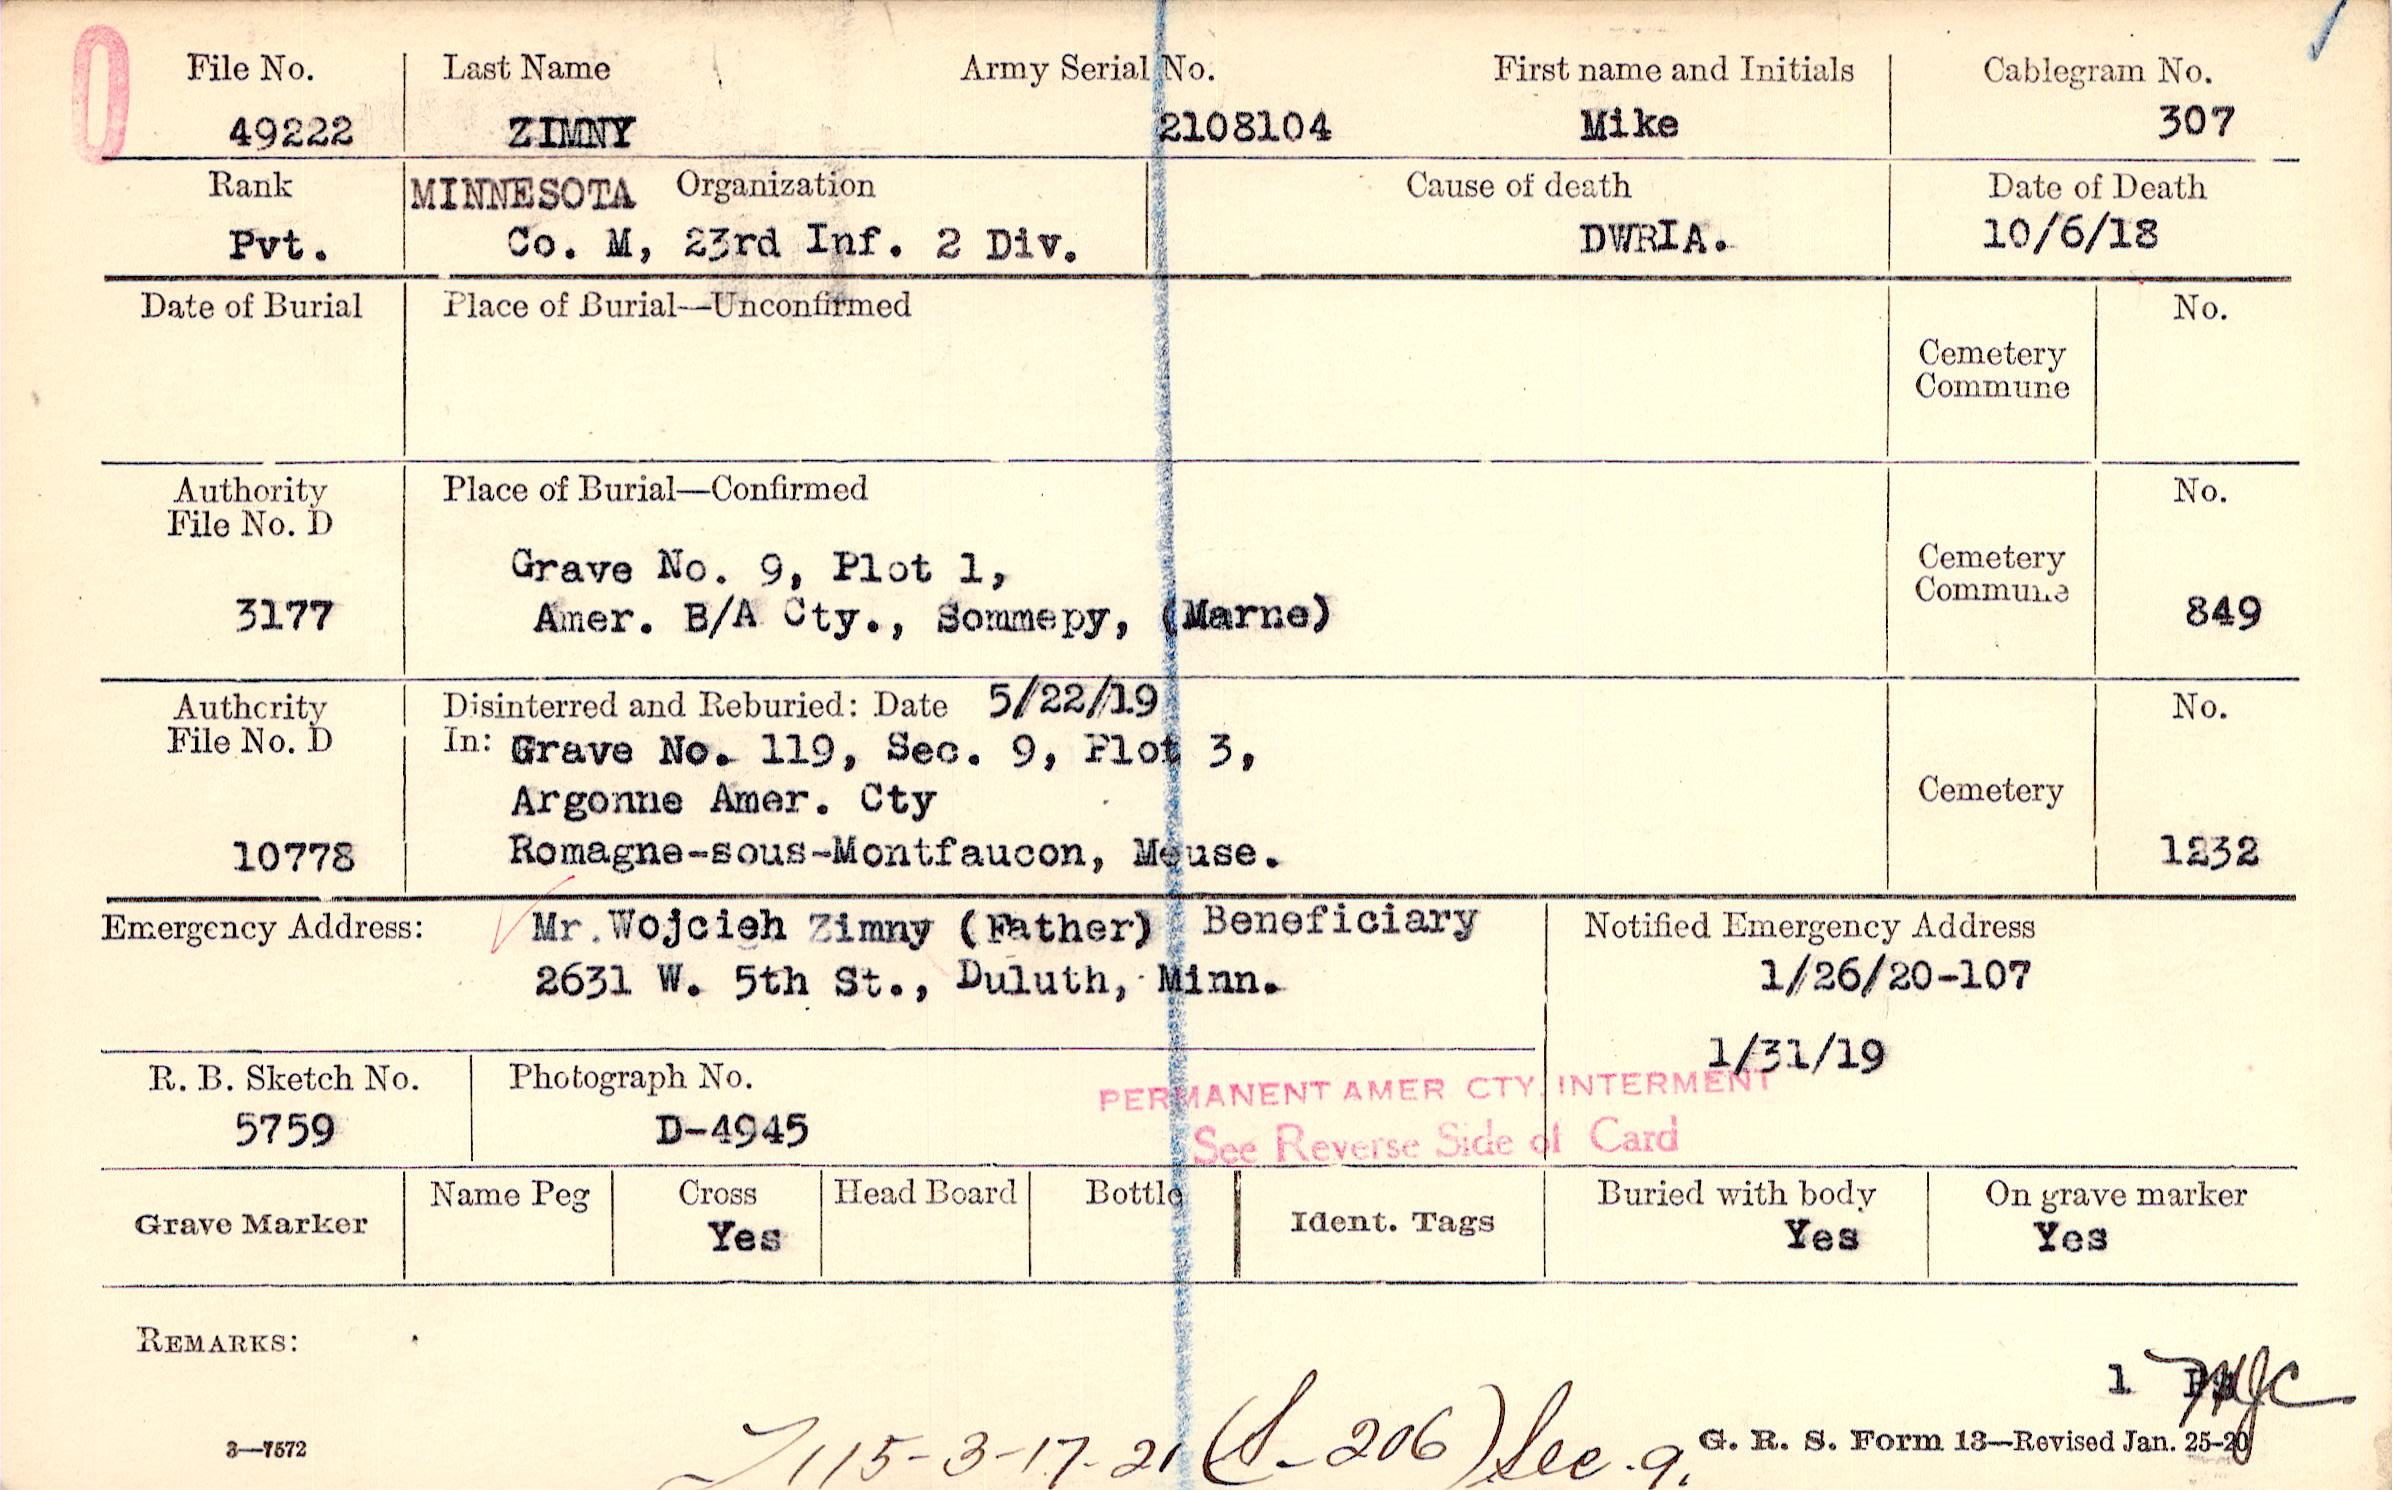 0
File No. Last Name Army Serial No. First name and Initials Cablegram No.
49222 ZIMNY 2108104 Mike 307
Rank MINNESOTA Organization Cause of death Date of Death
Pvt. Co. M, 23rd Inf. 2 Div. DWRIA. 10/6/18
Date of Burial Place of Burial—Unconfirmed No.
Cemetery
Commune
Authority Place of Burial—Confirmed No.
File No. D
Grave No. 9, Plot 1, Cemetery
Commune
3177 Amer. B/A Cty., Sommepy, (Marne) 849
Authority Disinterred and Reburied: Date 5/22/19 No.
File No. D In: Grave No. 119, Sec. 9, Plot 3,
Argonne Amer. Cty Cemetery
10778 Romagne-sous-Montfaucon, Meuse. 1232
Emergency Address: Mr. Wojcieh Zimny (Father) Beneficiary Notified Emergency Address
2631 W. 5th St., Duluth, Minn. 1/26/20-107
1/31/19
R. B. Sketch No. Photograph No. PERMANENT AMER CTY. INTERMENT
5759 D-4945 See Reverse Side of Card
Grave Marker Name Peg Cross Head Board Bottle Ident. Tags Buried with body On grave marker
Yes Yes Yes
REMARKS:
1
3—7572 115-3-17-21 (S-206) Sec. 9. G. R. S. Form 13—Revised Jan. 25-20